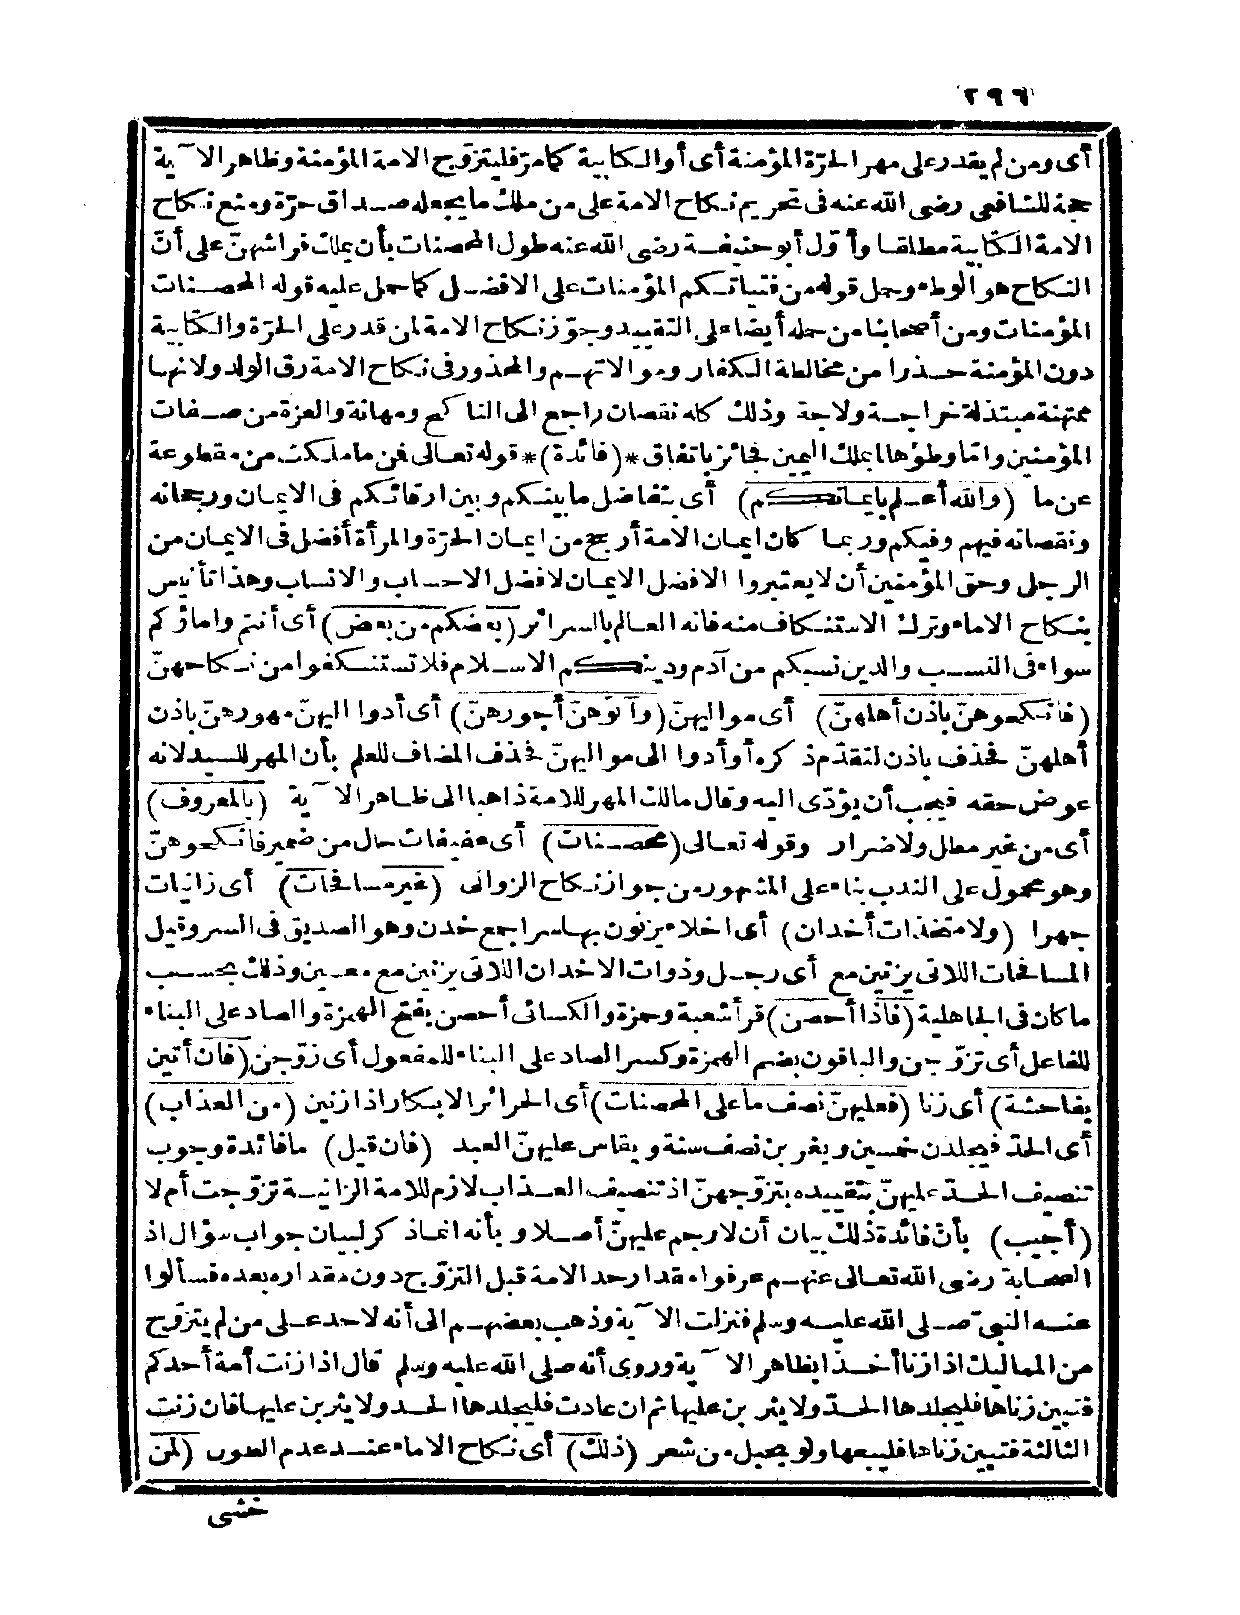 ٢٩٦
أى ومن لم يقدر على مهر الحرّة المؤمنة أى أو الكتابية كما مرّ فليتزوّج الامة المؤمنة وظاهر الآية
حجة للشافعى رضى الله عنه فى تحريم نكاح الامة على من ملك ما يجعله صداق حرّة ومنع نكاح
الامة الكتابية مطلقا وأوّل أبو حنيفة رضى الله عنه طول المحصنات بأن يملك فراشهنّ على أنّ
النكاح هو الوطء وحمل قوله من فتياتكم المؤمنات على الافضل كما حمل عليه قوله المحصنات
المؤمنات ومن أصحابنا من حمله أيضا على التقييد وجوّز نكاح الامة لمن قدر على الحرّة والكتابية
دون المؤمنة حذرا من مخالطة الكفار وموالاتهم والمحذور فى نكاح الامة رق الولد ولانها
ممتهنة مبتذلة خراجة ولاجة وذلك كله نقصان راجع الى الناكح ومهانة والعزة من صفات
المؤمنين وامّا وطؤها بملك اليمين فجائز باتفاق *(فائدة)* قوله تعالى فمن ما ملكت من مقطوعة
عن ما (والله أعلم بايمانكم) أى بتفاضل ما بينكم وبين ارقائكم فى الايمان ورجحانه
ونقصانه فيهم وفيكم وربما كان ايمان الامة أرجح من ايمان الحرّة والمرأة أفضل فى الايمان من
الرجل وحق المؤمنين أن لا يعتبروا الا فضل الايمان لا فضل الاحساب والانساب وهذا تأنيس
بنكاح الاماء وترك الاستنكاف منه فانه العالم بالسرائر (بعضكم من بعض) أى أنتم واماؤكم
سواء فى النسب والدين نسبكم من آدم ودينكم الاسلام فلا تستنكفوا من نكاحهنّ
(فانكحوهنّ باذن أهلهنّ) أى مواليهنّ (وآتوهنّ أجورهنّ) أى أدوا اليهنّ مهورهنّ باذن
أهلهنّ فحذف باذن لتقدّم ذكره أو أدوا الى مواليهنّ فحذف المضاف للعلم بأن المهر للسيد لانه
عوض حقه فيجب أن يؤدّى اليه وقال مالك المهر للامة ذاهبا الى ظاهر الآية (بالمعروف)
أى من غير مطل ولا ضرار وقوله تعالى (محصنات) أى عفيفات حال من ضمير فانكحوهنّ
وهو محمول على الندب بناء على المشهور من جواز نكاح الزوانى (غير مسافحات) أى زانيات
جهرا (ولا متخذات أخدان) أى اخلاء يزنون بها سرا جمع خدن وهو الصديق فى السر وقيل
المسافحات اللاتى يزنين مع أى رجل وذوات الاخدان اللاتى يزنين مع معين وذلك بحسب
ما كان فى الجاهلية (فاذا أحصن) قرأ شعبة وحمزة والكسائى أحصن بفتح الهمزة والصاد على البناء
للفاعل أى تزوّجن والباقون بضم الهمزة وكسر الصاد على البناء للمفعول أى زوّجن (فان أتين
بفاحشة) أى زنا (فعليهنّ نصف ما على المحصنات) أى الحرائر الابكار اذا زنين (من العذاب)
أى الحدّ فيجلدن خمسين ويغربن نصف سنة ويقاس عليهنّ العبد (فان قيل) ما فائدة وجوب
تنصيف الحدّ عليهنّ بتقييده بتزوّجهنّ اذ تنصيف العذاب لازم للامة الزانية تزوّجت أم لا
(أجيب) بأن فائدة ذلك بيان أن لا رجم عليهنّ أصلا و بأنه انما ذكر لبيان جواب سؤال اذ
الصحابة رضى الله تعالى عنهم عرفوا مقدار حد الامة قبل التزوّج دون مقداره بعده فسألوا
عنه النبىّ صلى الله عليه وسلم فنزلت الآية وذهب بعضهم الى أنه لا حد على من لم يتزوّج
من المماليك اذا زنا أخذا بظاهر الآية وروى أنه صلى الله عليه وسلم قال اذا زنت أمة أحدكم
فتبين زناها فليجلدها الحدّ ولا يثربن عليها ثم ان عادت فليجلدها الحد ولا يثربن عليها فان زنت
الثالثة فتبين زناها فليبعها ولو بحبل من شعر (ذلك) أى نكاح الاماء عند عدم الطول (لمن
خشى